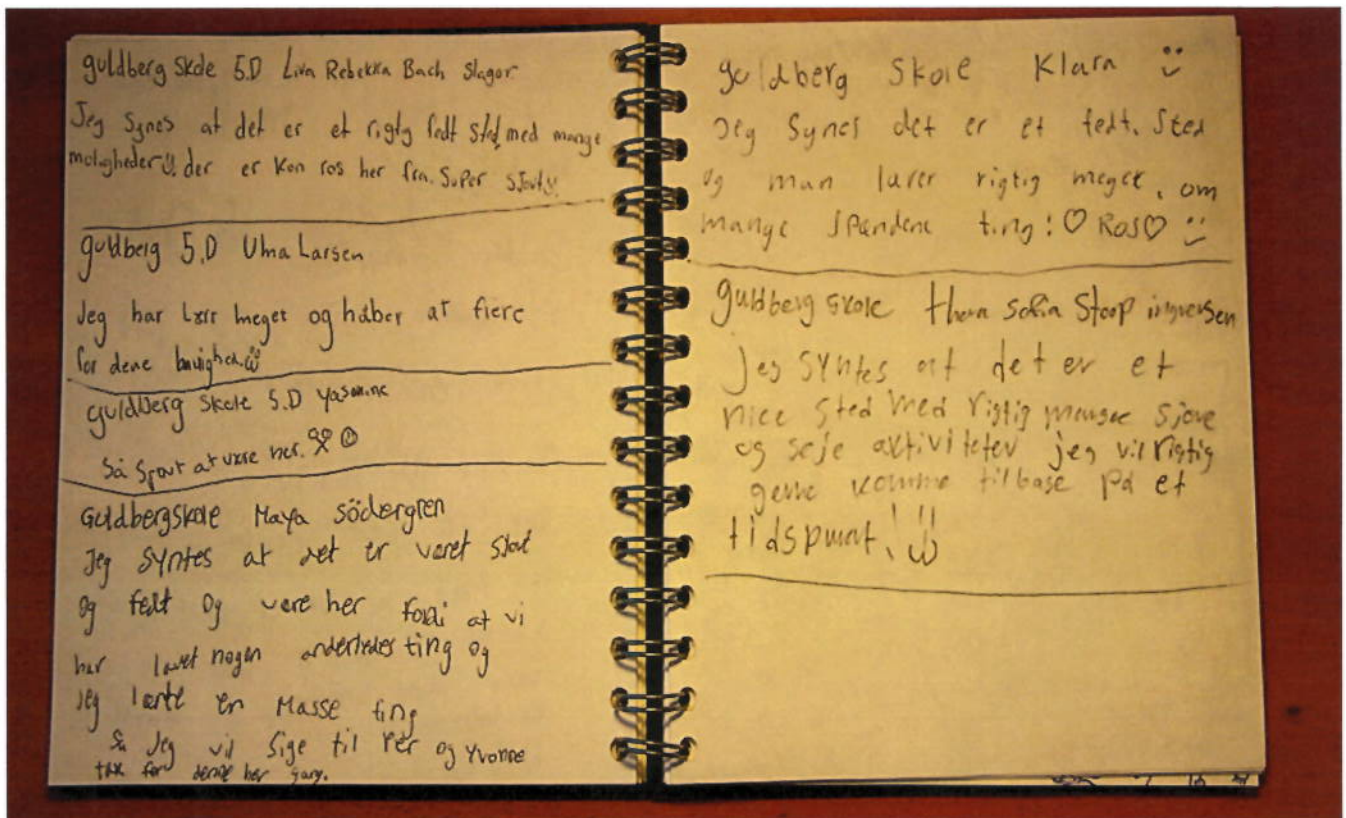 guldberg skole 5.D Liva Rebekka Bach Slagor
Jeg Synes at det er et rigtg fedt sted, med mange
moligheder der er kon ros her fra. Super sjovt
guldberg 5.D Uma Larsen
Jeg har Lært meget og håber at flere
får dene
guldberg skole 5.D Yasmine
Så sjovt at være her.
Guldbergskole Maya södergren
Jeg syntes at det er været sjovt
og fedt Og være her fordi at vi
har lavet nogen anderledes ting og
jeg lærte en Masse ting
Så Jeg vil Sige til Per og Yvonne
tak for denne her gang.
guldberg Skole Klara
Jeg Synes det er et fedt. Sted
og man lærer rigtig meget, om
mange spændene ting! ♡ Ros ♡
guldberg skole thora Sofia Stoop ingversen
jeg syntes at det er et
nice sted med rigtig mange sjove
og seje aktiviteter jeg vil rigtig
gerne komme tilbage på et
tidspunkt!